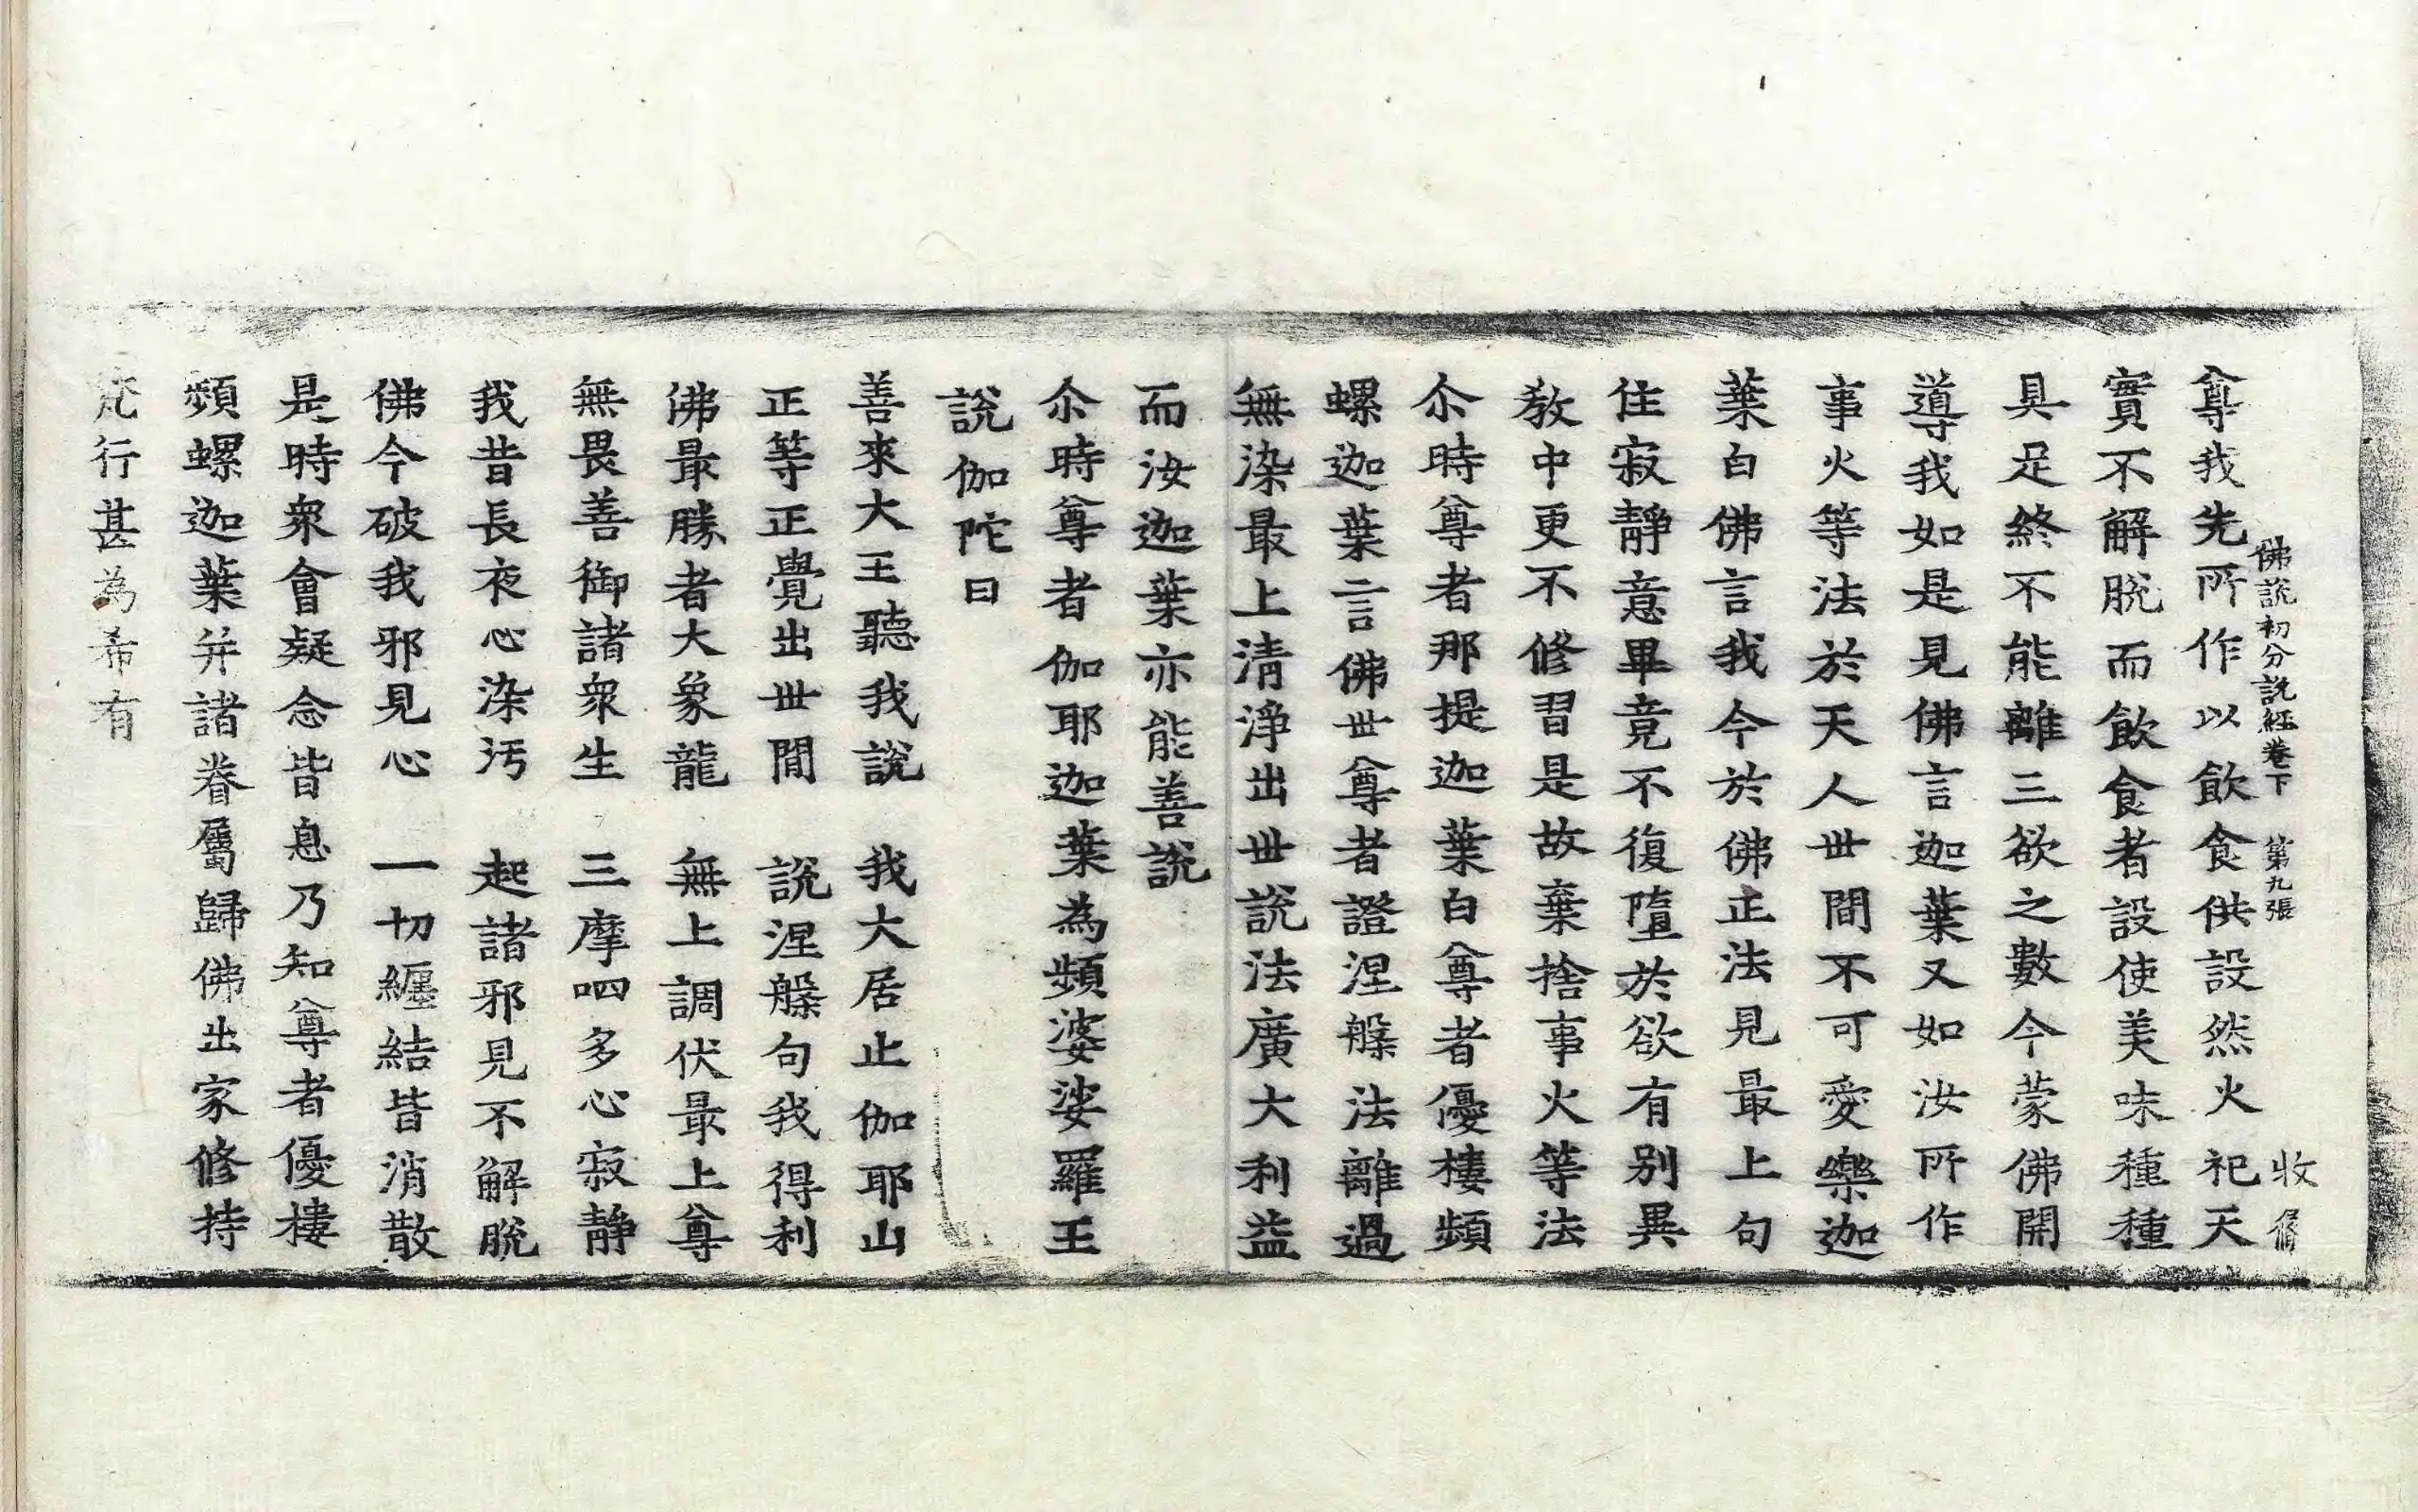 佛說初分說經卷下　第九張　收
尊我先所作以飲食供設然火祀天
實不解脫而飲食者設使美味種種
具足終不能離三欲之數今蒙佛開
導我如是見佛言迦葉又如汝所作
事火等法於天人世間不可愛樂迦
葉白佛言我今於佛正法見最上句
住寂靜意畢竟不復墮於欲有別異
教中更不修習是故棄捨事火等法
尒時尊者那提迦葉白尊者優樓頻
螺迦葉言佛世尊者證涅槃法離過
無染最上清淨出世說法廣大利益
而汝迦葉亦能善說
尒時尊者伽耶迦葉為頻婆娑羅王
說伽陀曰
善來大王聽我說　我大居止伽耶山
正等正覺出世間　說涅槃句我得利
佛最勝者大象龍　無上調伏最上尊
無畏善御諸衆生　三摩呬多心寂靜
我昔長夜心染汚　起諸邪見不解脫
佛今破我邪見心　一切纏結皆消散
是時衆會疑念皆息乃知尊者優樓
頻螺迦葉并諸眷屬歸佛出家修持
梵行甚為希有